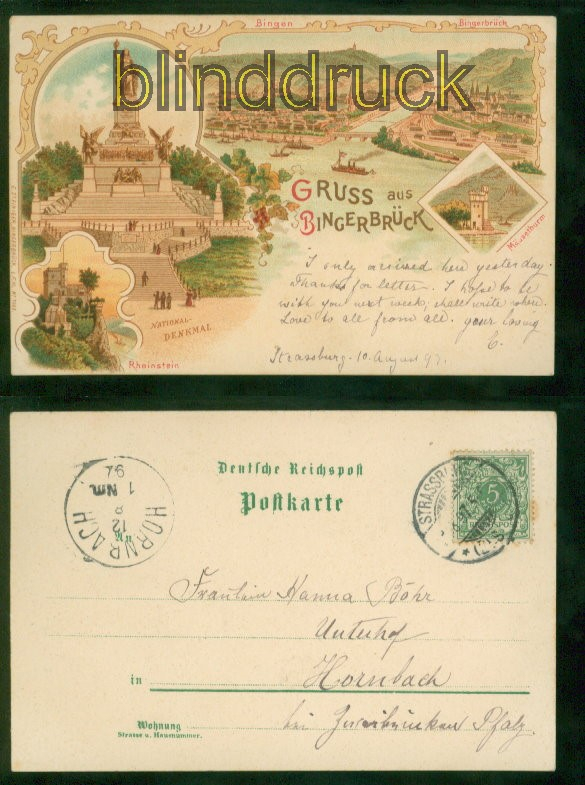 Bingen
Bingerbrück
blinddruck
GRUSS aus
BINGERBRÜCK
Mäusethurm
I only arrived here yesterday.
Thanks for letter. I hope to be
with you next week, shall write when.
Love to all from all. your loving
C.
Strassburg. 10. August 97.
NATIONAL-
DENKMAL
Rheinstein
Deutsche Reichspost
Postkarte
HORNBACH
12
8
1 Nm.
97
An
STRASSBURG
(ELS.)
5
REICHSPOST
Fräulein Hanna Böhr
Unterhof
in Hornbach
bei Zweibrücken Pfalz.
Wohnung
Strasse u. Hausnummer.